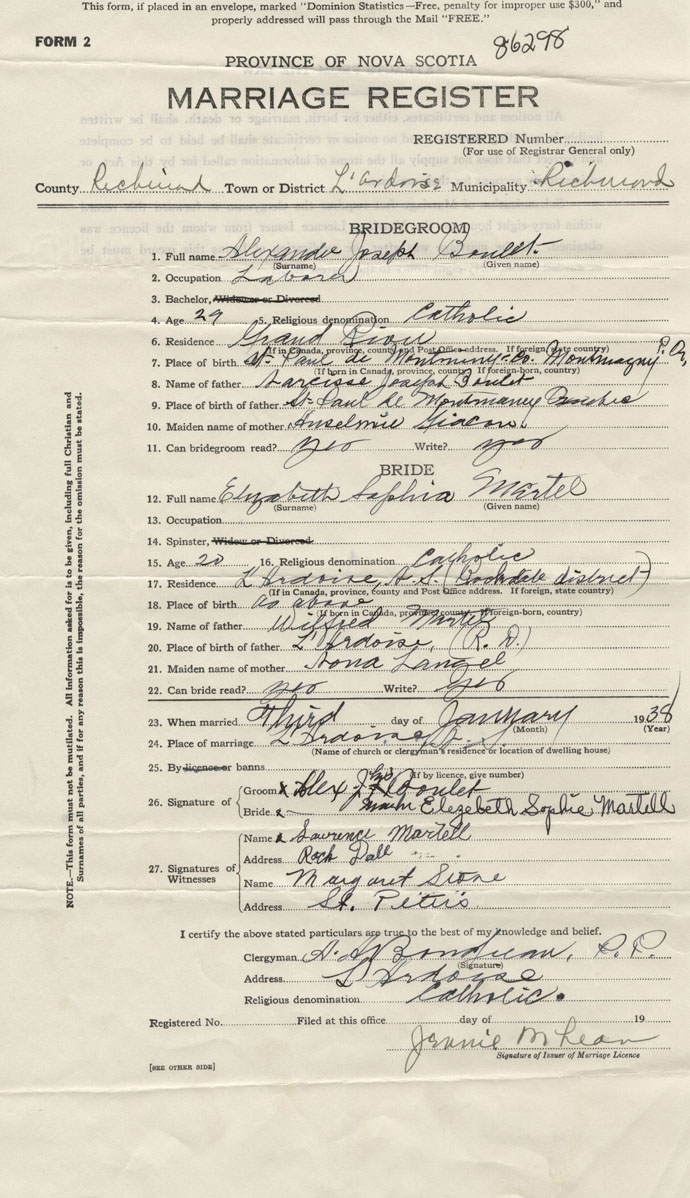 This form, if placed in an envelope, marked "Dominion Statistics—Free, penalty for improper use $300," and
properly addressed will pass through the Mail "FREE."
FORM 2
86298
PROVINCE OF NOVA SCOTIA
MARRIAGE REGISTER
REGISTERED Number
(For use of Registrar General only)
County Richmond Town or District L'Ardoise Municipality Richmond
BRIDEGROOM
1. Full name Alexander Joseph Boulet
(Surname) (Given name)
2. Occupation Labor
3. Bachelor, Widower or Divorced
4. Age 29 5. Religious denomination Catholic
6. Residence Grand River
(If in Canada, province, county and Post Office address. If foreign, state country)
7. Place of birth St. Paul de Montminy Co. Montmagny P.Q.
(If born in Canada, province, county. If foreign-born, country)
8. Name of father Narcisse Joseph Boulet
9. Place of birth of father St. Paul de Quebec
10. Maiden name of mother
11. Can bridegroom read? yes Write? yes
BRIDE
12. Full name Elizabeth Sophia Martel
(Surname) (Given name)
13. Occupation
14. Spinster, Widow or Divorced
15. Age 20 16. Religious denomination Catholic
17. Residence L'Ardoise, N.S. (Rockdale district)
(If in Canada, province, county and Post Office address. If foreign, state country)
18. Place of birth as above
(If born in Canada, province, county. If foreign-born, country)
19. Name of father Wilfred Martel
20. Place of birth of father L'Ardoise, (R.D.)
21. Maiden name of mother
22. Can bride read? yes Write? yes
23. When married Third day of January 1938
(Month) (Year)
24. Place of marriage L'Ardoise
(Name of church or clergyman's residence or location of dwelling house)
25. By licence or banns
(If by licence, give number)
26. Signature of
Groom x Alex J. Boulet
Bride x Elezebeth Sophie Martell
27. Signatures of Witnesses
Name x Lawrence Martell
Address Rock Dall
Name Margaret Stone
Address St. Peters
I certify the above stated particulars are true to the best of my knowledge and belief.
Clergyman P.P.
(Signature)
Address L'Ardoise
Religious denomination Catholic.
Registered No. Filed at this office day of 19
Jennie McLean
Signature of Issuer of Marriage Licence
[SEE OTHER SIDE]
NOTE.—This form must not be mutilated. All information asked for is to be given, including full Christian and
Surnames of all parties, and if for any reason this is impossible, the reason for the omission must be stated.